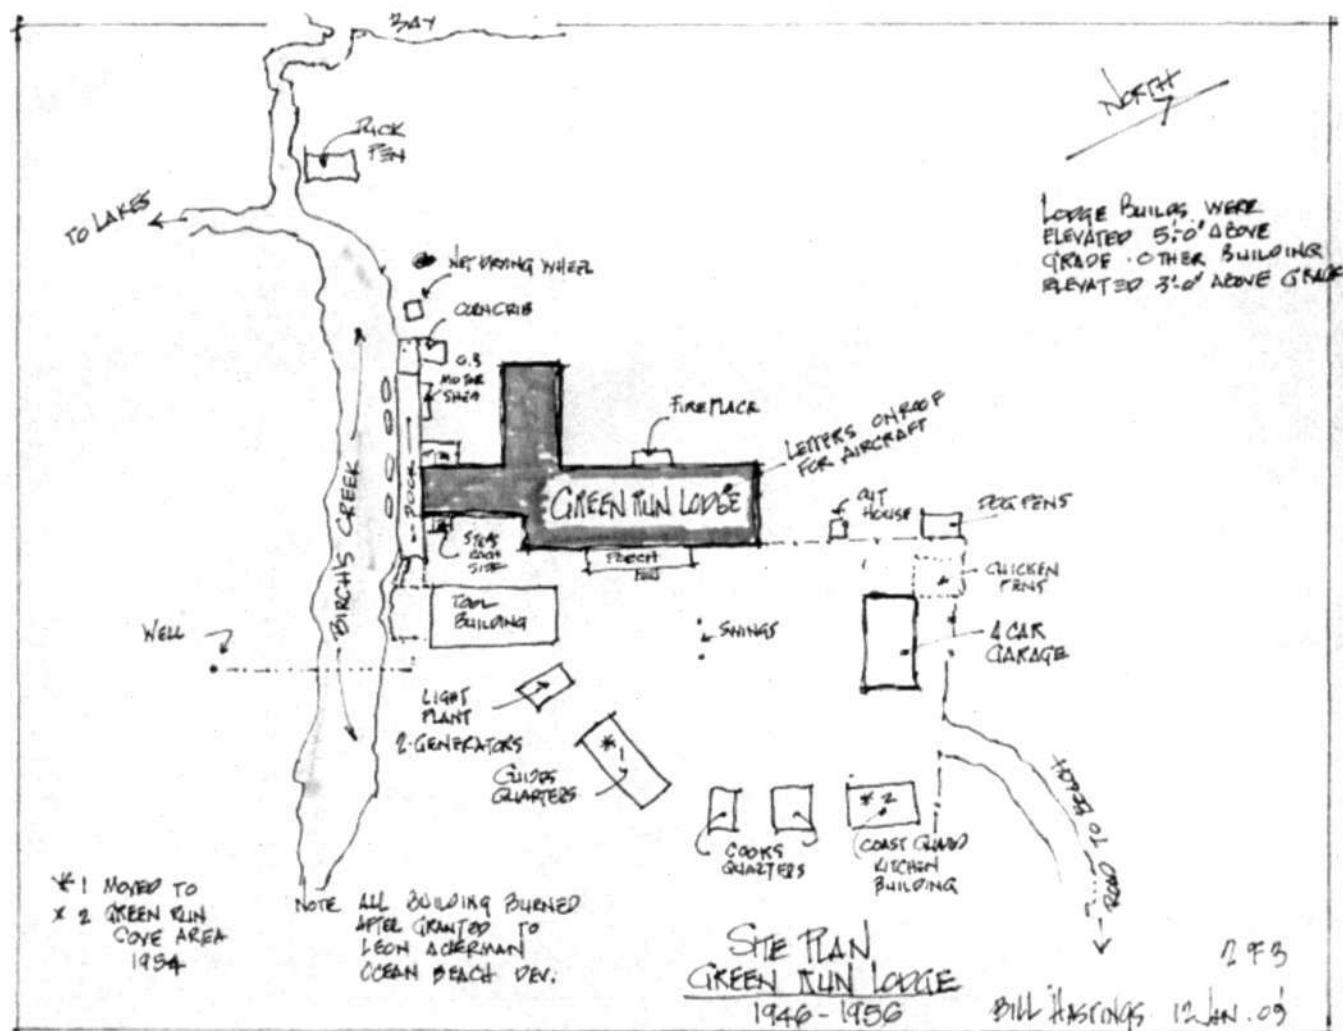 BAY
NORTH
DUCK
PEN
TO LAKES
LODGE BUILDS. WERE
ELEVATED 5'-0" ABOVE
GRADE. OTHER BUILDING
ELEVATED 3'-0" ABOVE GRADE
NET DRYING WHEEL
CORN CRIB
O.B
MOTOR
SHED
FIREPLACE
LETTERS ON ROOF
FOR AIRCRAFT
DOCK
GREEN RUN LODGE
OUT
HOUSE
DOG PENS
BIRCH'S CREEK
STEPS
EACH
SIDE
PORCH
CHICKEN
PENS
TOOL
BUILDING
WELL
SWINGS
4 CAR
GARAGE
LIGHT
PLANT
2-GENERATORS
* 1
GUIDES
QUARTERS
* 2
COOKS
QUARTERS
COAST GUARD
KITCHEN
BUILDING
ROAD TO BEACH
* 1 MOVED TO
* 2 GREEN RUN
COVE AREA
1954
NOTE ALL BUILDING BURNED
AFTER GRANTED TO
LEON ACKERMAN
OCEAN BEACH DEV.
SITE PLAN
GREEN RUN LODGE
1946-1956
2 OF 3
BILL HASTINGS 12 JAN. 09